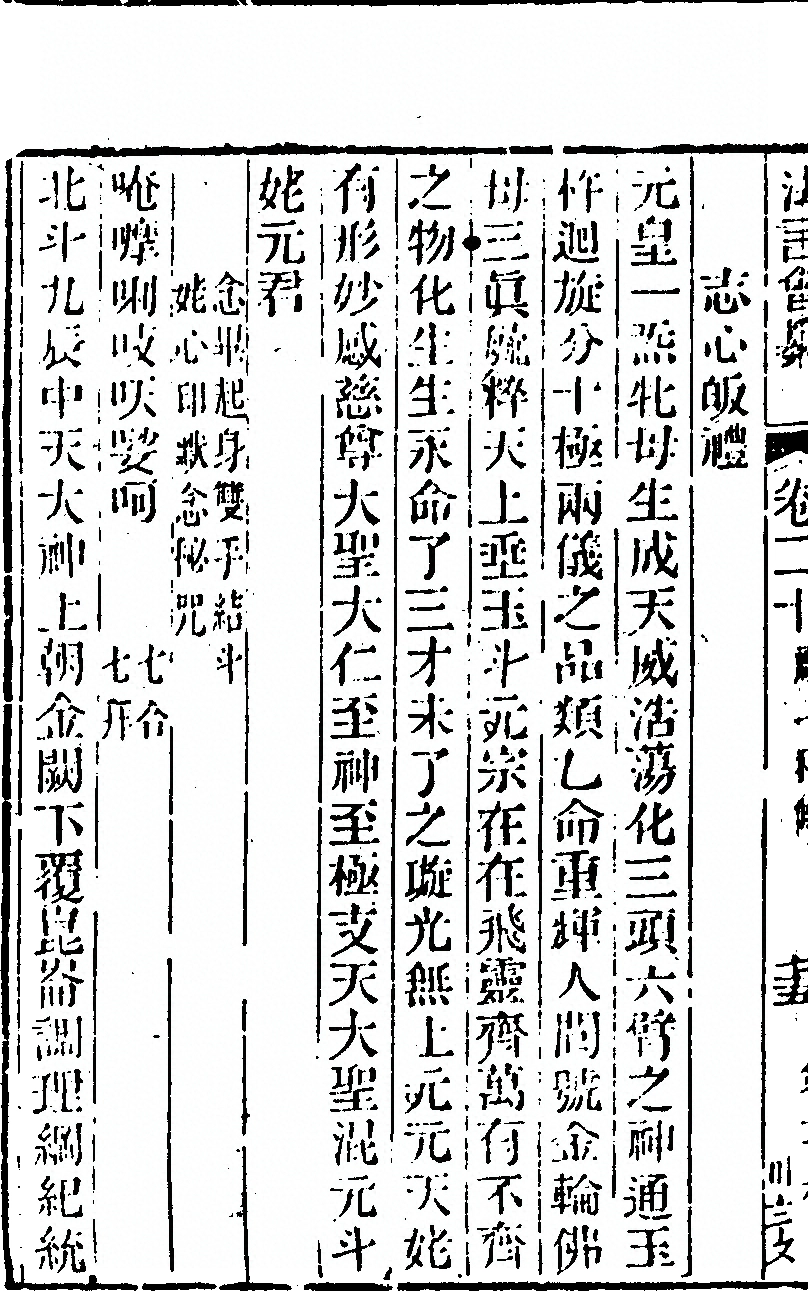 法言會纂 卷二十
志心皈禮
元皇一炁牝母生成天威浩蕩化三頭六臂之神通玉
杵迴旋分十極兩儀之品類乙命重輝人間號金輪佛
母三眞號粹天上垂玉斗元宗在在飛靈齊萬有不齊
之物化生生永命了三才未了之璇光無上元元天姥
有形妙感慈尊大聖大仁至神至極支天大聖混元斗
姥元君
念畢起身雙手結斗
姥心印默念秘咒
唵㗚唎吱㕭娑呵
七合
七开
北斗九辰中天大神上朝金闕下覆崑崙調理綱紀統